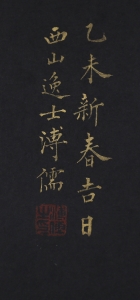 乙未新春吉日
西山逸士溥儒